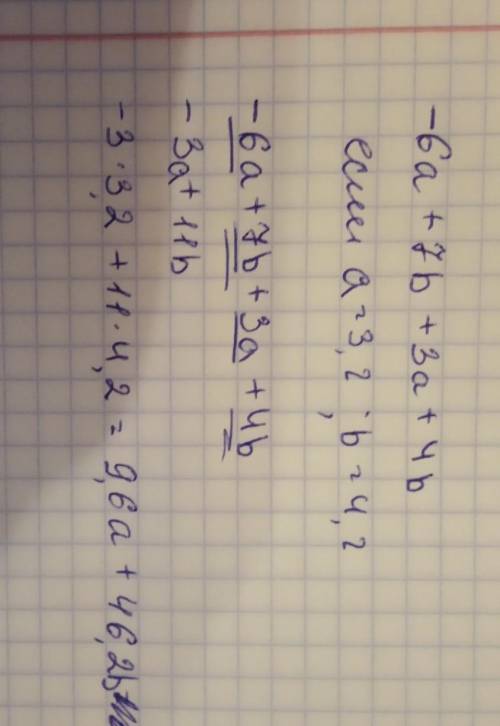 -6a + 7b + 3a + 4b
если a = 3,2; b = 4,2
-6a + 7b + 3a + 4b
-3a + 11b
-3·3,2 + 11·4,2 = 9,6a + 46,2b